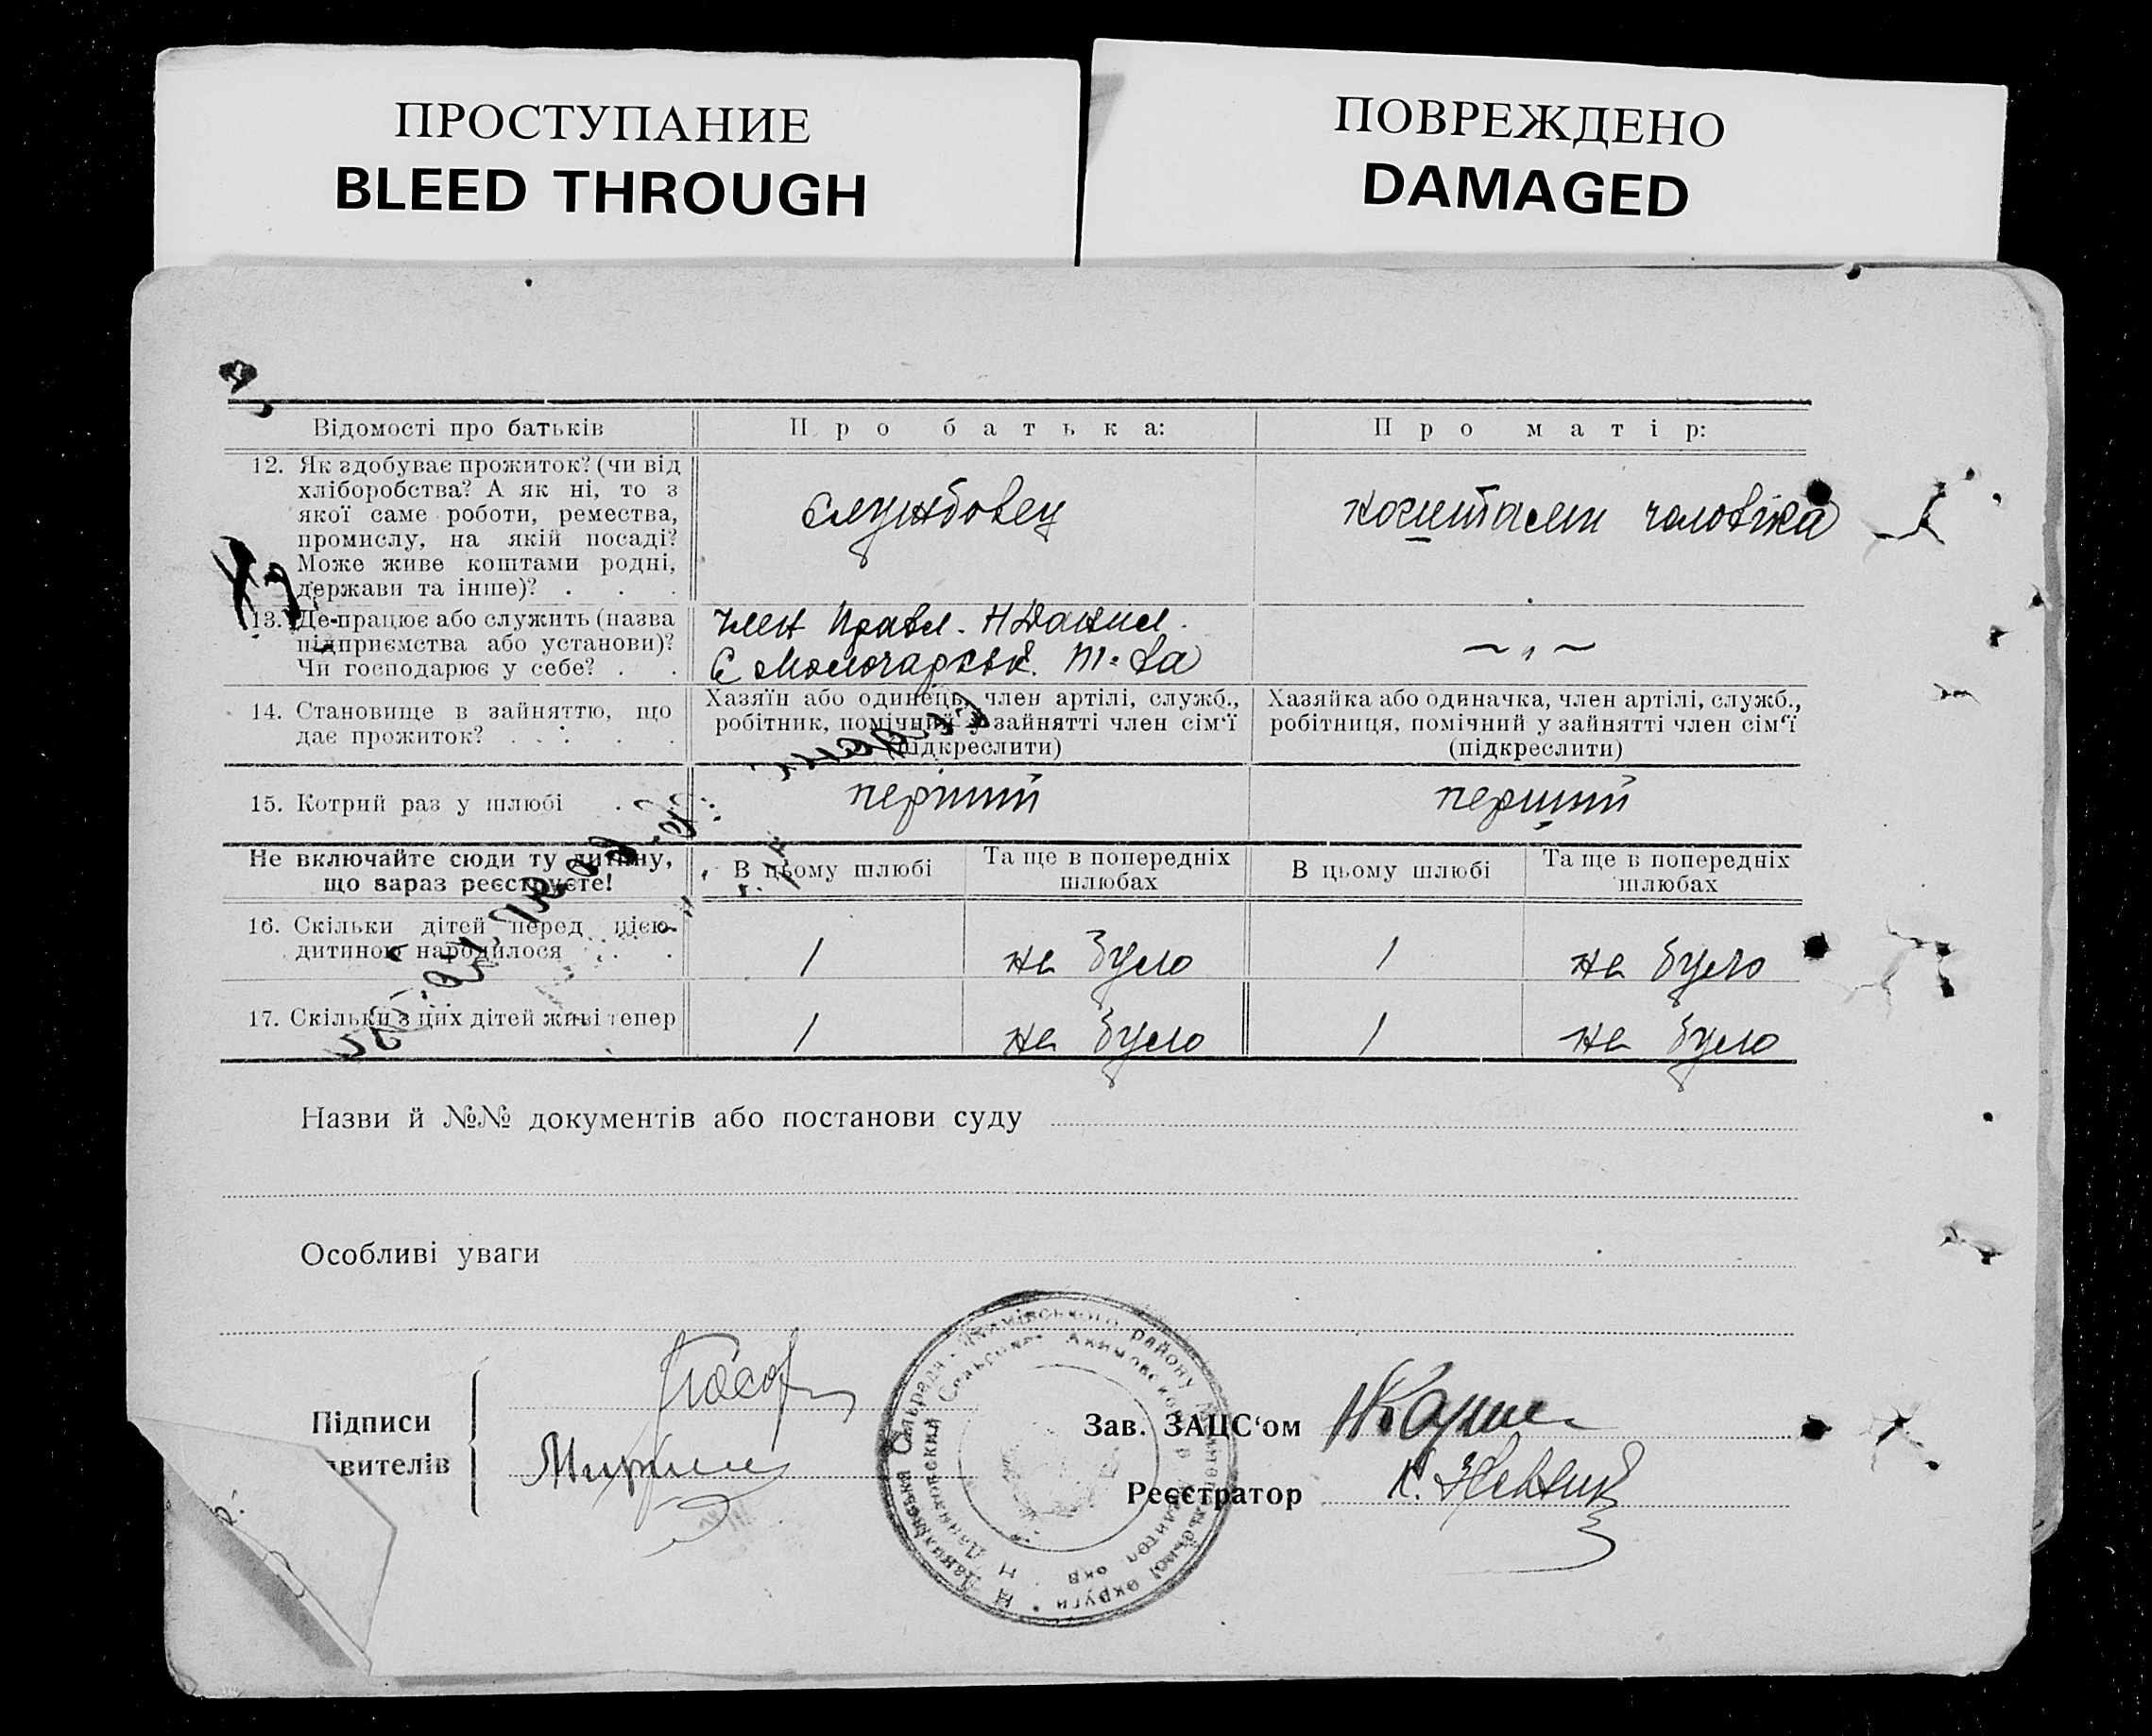 ПРОСТУПАНИЕ
BLEED THROUGH
ПОВРЕЖДЕНО
DAMAGED
Відомості про батьків
Про батька:
Про матір:
12. Як здобуває прожиток? (чи від
хліборобства? А як ні, то з
якої саме роботи, ремества,
промислу, на якій посаді?
Може живе коштами родні,
держави та інше)? . . .
службовец
коштами чоловіка
13. Де працює або служить (назва
підприємства або установи)?
Чи господарює у себе? . .
член Правл. НДанил.
Є Молочарськ. т-ва
~ „ ~
14. Становище в зайняттю, що
дає прожиток? . . . . .
Хазяїн або одинець, член артілі, служб.,
робітник, помічний у зайнятті член сім'ї
(підкреслити)
Хазяйка або одиначка, член артілі, служб.,
робітниця, помічний у зайнятті член сім'ї
(підкреслити)
15. Котрий раз у шлюбі .
перший
перший
Не включайте сюди ту дитину,
що зараз реєструєте!
В цьому шлюбі
Та ще в попередніх
шлюбах
В цьому шлюбі
Та ще в попередніх
шлюбах
16. Скільки дітей перед цією
дитиною народилося . . .
1
не було
1
не було
17. Скільки з цих дітей живі тепер
1
не було
1
не було
Назви й №№ документів або постанови суду
Особливі уваги
Підписи
явителів
Зав. ЗАЦС'ом
Реєстратор
Н Данилівська Сільрада Якимівського району Мелітопільської округи
Н Даниловский Сельсовет Акимовского р Мелитоп окр